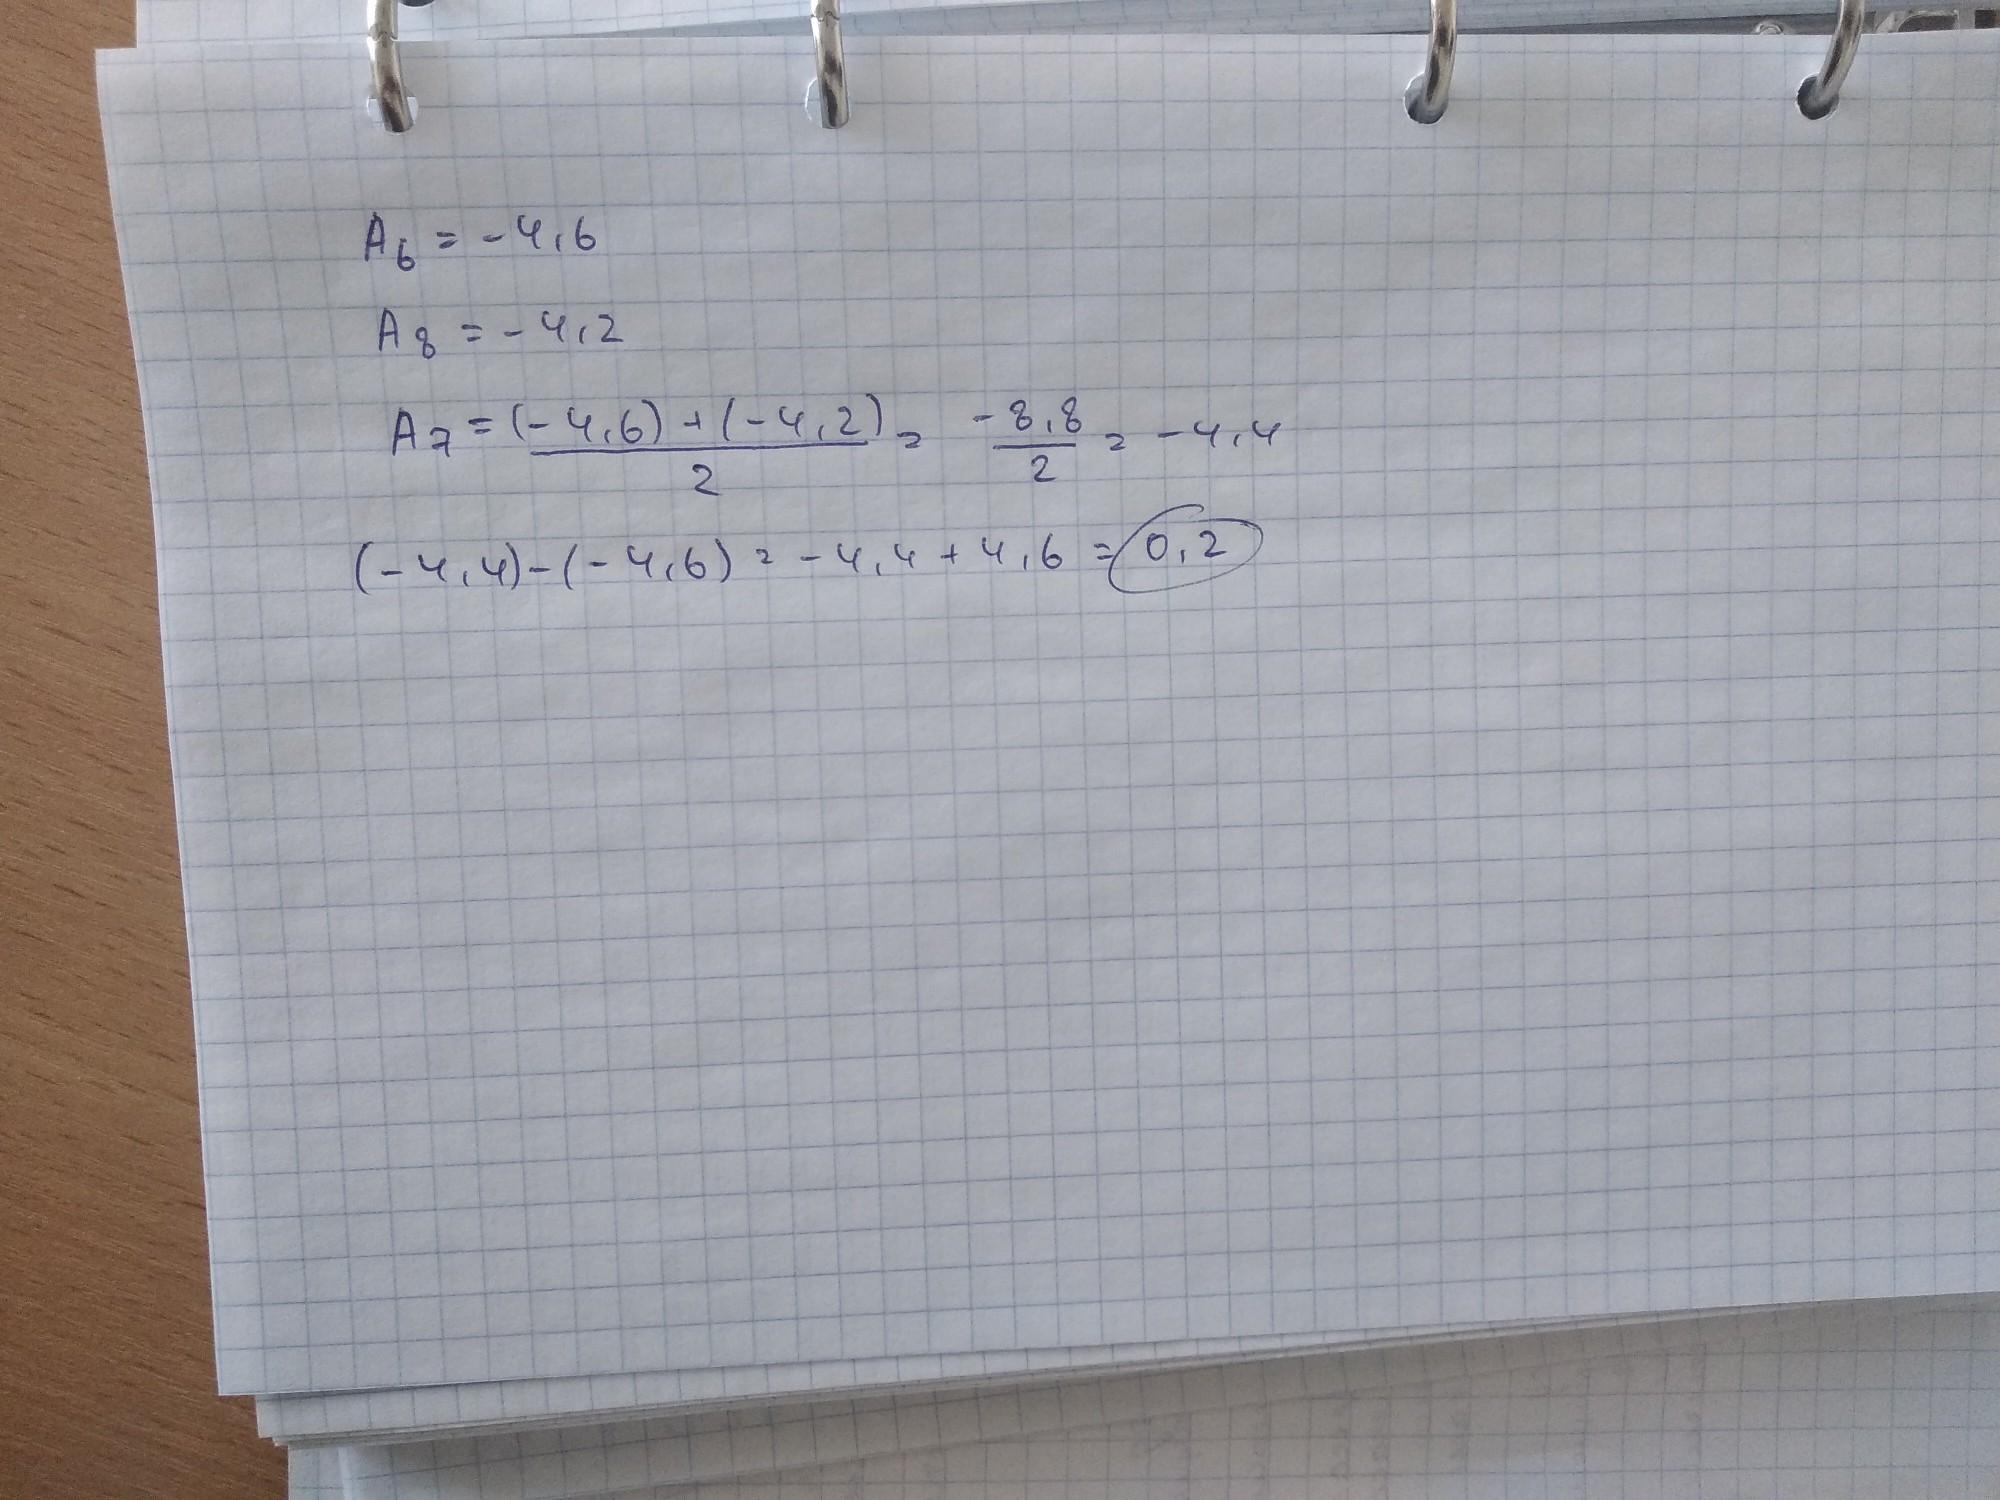 A₆ = -4,6
A₈ = -4,2
A₇ = ((-4,6) + (-4,2))/2 = -8,8/2 = -4,4
(-4,4)-(-4,6) = -4,4 + 4,6 = 0,2